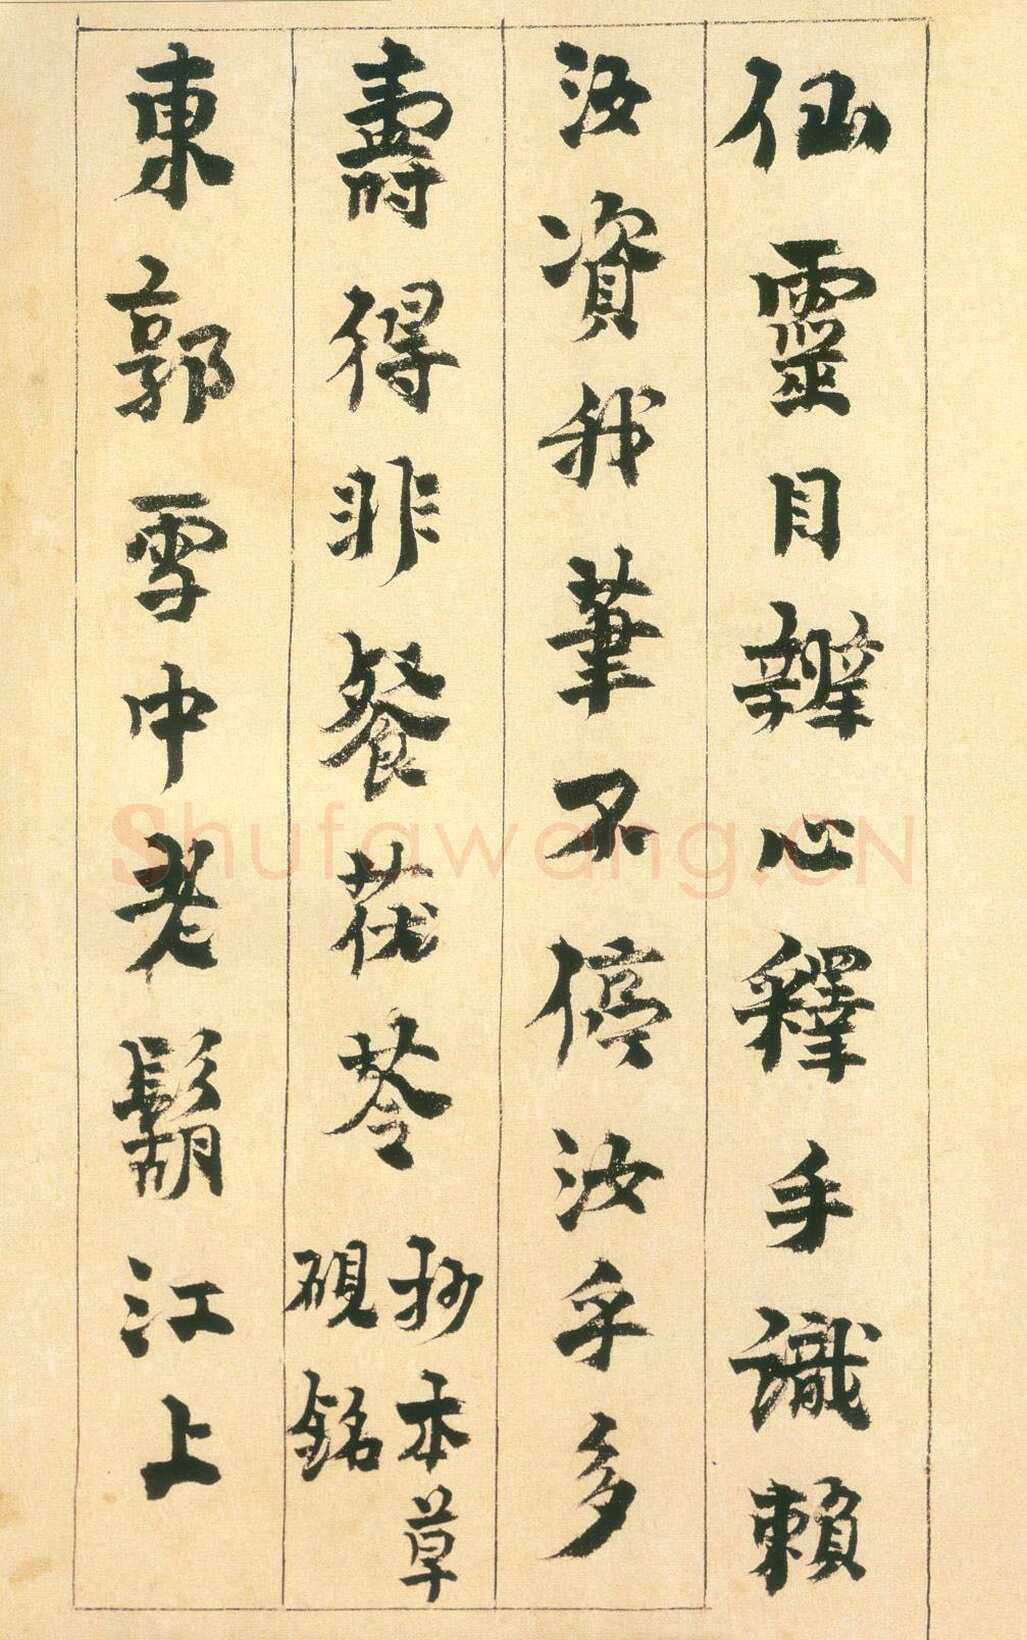 仙靈目辨心釋手識賴
汝資我筆不停汝乎多
壽得非餐茯苓抄本草硯銘
東郭雪中老鬍江上
Shufawang.CN